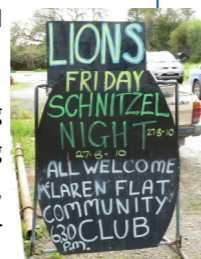 LIONS
FRIDAY
SCHNITZEL
NIGHT 27-8-10
27-8-10
ALL WELCOME
McLAREN FLAT
COMMUNITY
6.30 CLUB
P.m.